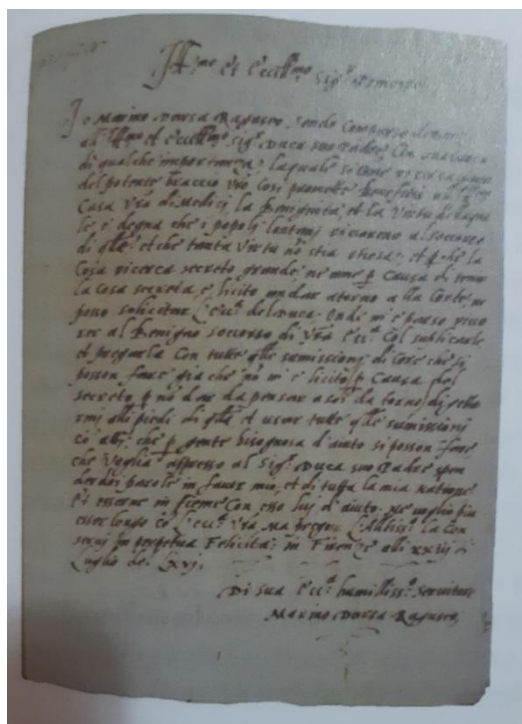 Ill.mo et Ecell.mo Sig.r
Io Marino Darsa Raguseo, sendo comparso
all Ill.mo et Ecell.mo Sig.r Duca suo Padre, con
di qualche importanza; laquale se conte
del potente braccio Vro cosi promette beneficii
Casa Vra di Medici, la Benignita, et la Virtu di laqua
le, è degna che i popoli lontani ricorano al soccorso
di q.lla, et che tanta Virtu no stia otiosa; et p che la
Cosa ricerca secreto grande, ne a me p causa di tener
la cosa secreta, è licito andar atorno alla Corte ne
posso solicitar l'Ecc.a del Duca. Onde mi è parso ricor
rer al Benigno soccorso di Vra Ecc.a col suplicarle
et pregarla con tutte q.lle sumissioni di core che si
posson fare già che no mi è licito p Causa del
secreto p no dar da pensar a costoro di getta
rmi alli piedi di q.lla et usar tutte q.lle sumissioni
co altri che p gente bisognosa d'aiuto si posson fare
che Voglia appresso al Sig.r Duca suo Padre spen
der doi parole in favor mio, et di tutta la mia natione
et esserne in sieme con esso lui d'aiuto. Ne voglio più
esser longo co l'Ecc.a Vra Ma pregon l'Altiss.o la con
servi in perpetua Felicita; in Firenze alli xxiii di
Luglio del Lxvi.
Di sua Ecc.a humiliss.o Servitore
Marino Darsa Raguseo,